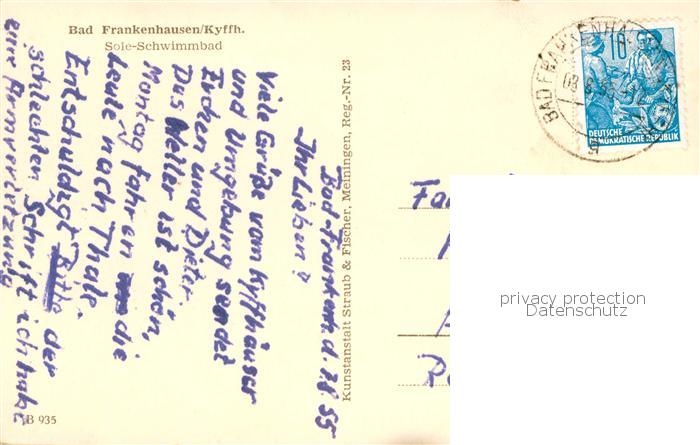 Bad Frankenhausen/Kyffh.
Sole-Schwimmbad
Bad-Frankenh. d. 7.8.55
Ihr Lieben!
Viele Grüße vom Kyffhäuser
und Umgebung sendet
Evchen und Dieter.
Das Wetter ist schön,
Montag fahren die
Leute nach Thale.
Entschuldigt Bitte der
schlechten Schrift ich habe
eine Armverletzung
B 935
Kunstanstalt Straub & Fischer, Meiningen, Reg.-Nr. 23
BAD FRANKENHAUSEN
10
DEUTSCHE
DEMOKRATISCHE REPUBLIK
Fa
privacy protection
Datenschutz